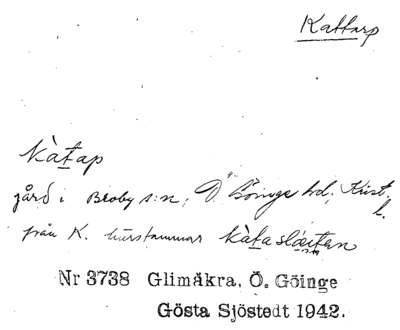 Kattarp
kàṯap
gård i Broby s:n, Ö Göinge hd, Krist. l.
från K. härstammar kàṯaslæ̱ṉten
Nr 3738 Glimåkra, Ö. Göinge
Gösta Sjöstedt 1942.